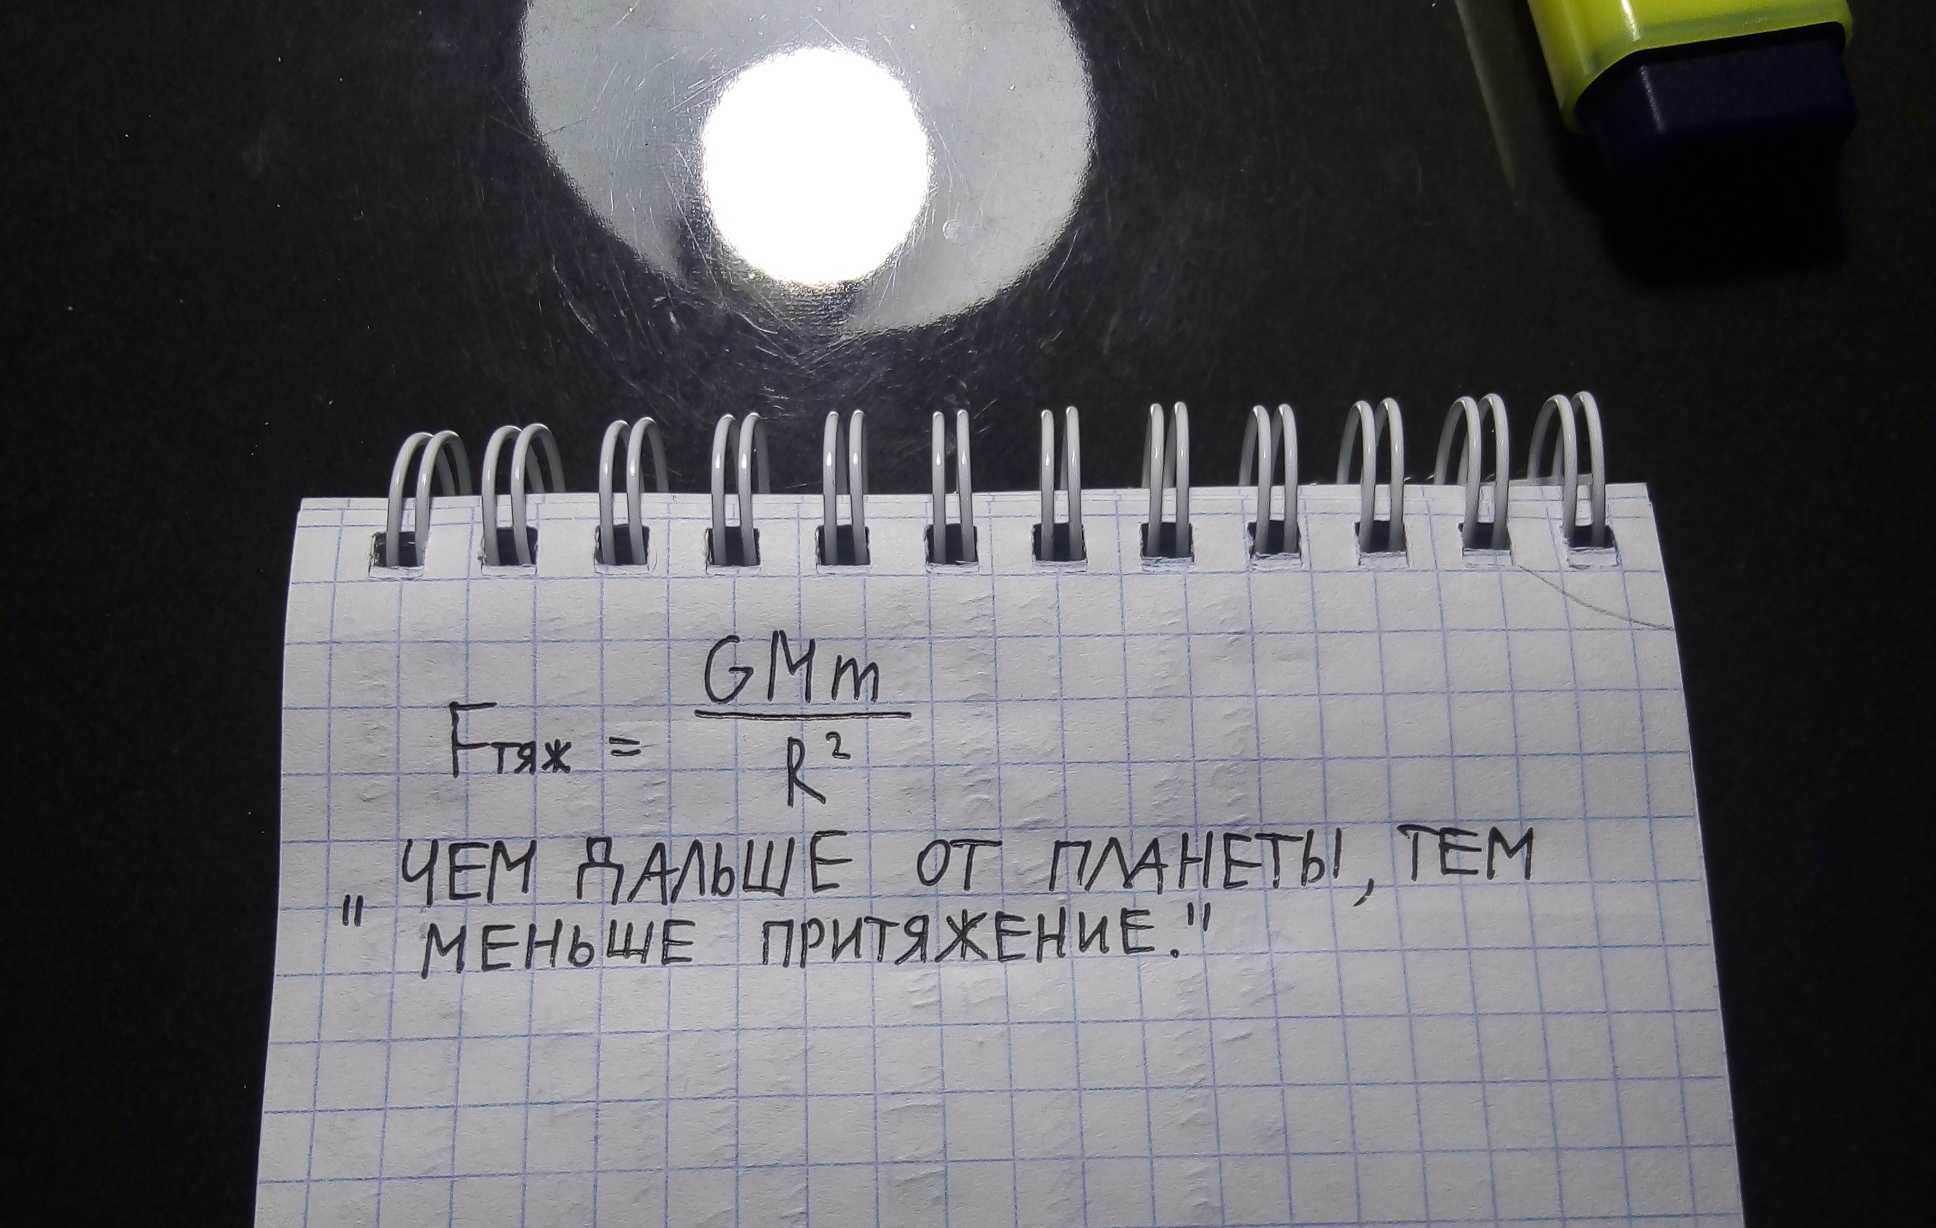 Fтяж = GMm / R²
„ ЧЕМ ДАЛЬШЕ ОТ ПЛАНЕТЫ, ТЕМ
МЕНЬШЕ ПРИТЯЖЕНИЕ."